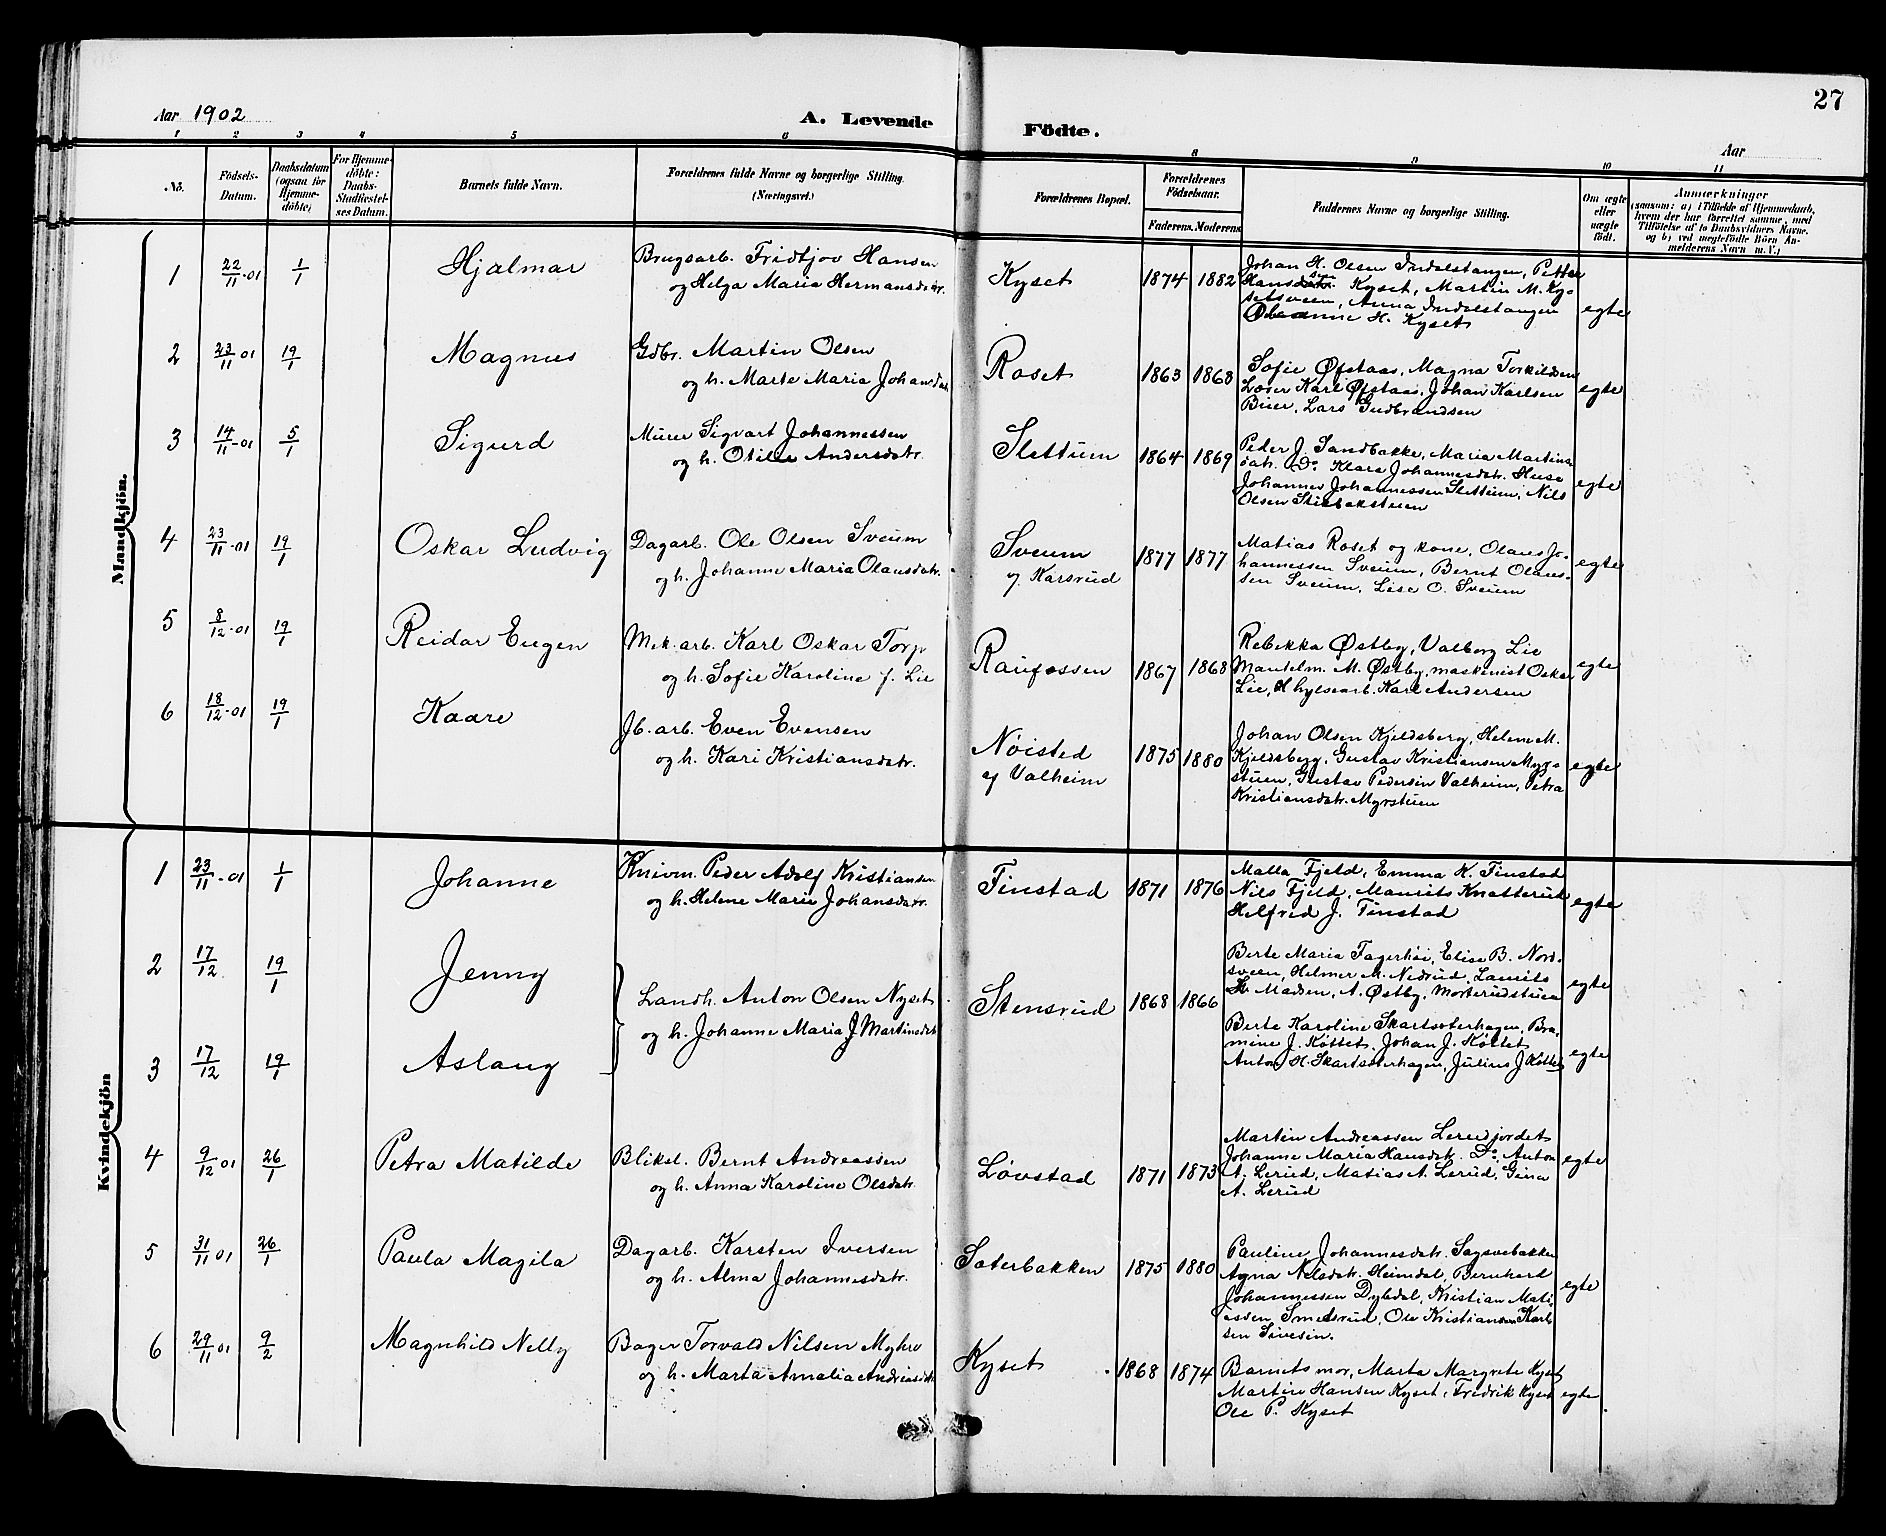 27
Aar 1902
A. Levende Födte.
Aar
1 2 3 4 5 6 8 9 10 11
No.
Födsels-Datum.
Daabsdatum (ogsaa for Hjemmedöbte)
For Hjemmedöbte: Daabs-Stadfæstelses Datum.
Barnets fulde Navn.
Forældrenes fulde Navne og borgerlige Stilling. (Næringsvei.)
Forældrenes Bopæl.
Forældrenes Födselsaar.
Faderens. Moderens.
Faddernes Navne og borgerlige Stilling.
Om ægte eller uægte födt.
Anmærkninger
(saasom: a) i Tilfælde af Hjemmedaab, hvem der har forrettet samme, med Tilföielse af to Daabsvidners Navne. og b) ved uægtefödte Börn Anmelderens Navn m.V.)
Mandkjön.
1 22/11-01 1/1 Hjalmar
Brugsarb. Fridtjov Hansen
og Helga Maria Hermansdatr.
Kyset 1874 1882
Johan H. Olsen Indalstangen, Petter
Hanssen Kyset, Martin M. Ky-
setsveen, Anna Indalstangen
Oleanne H. Kyset
egte
2 23/11 01 19/1 Magnus
Gdbr. Martin Olsen
og h. Marte Maria Johansdatr.
Roset 1863 1868
Sofie Øfstaas, Magna Torkildsen
Lærer Karl Øfstaas, Johan Karlsen
Buer, Lars Gudbrandsen
egte
3 14/11-01 5/1 Sigurd
Murer Sigvart Johannessen
og h. Otilie Andersdatr.
Slettum 1864 1869
Peder J. Sandbakke, Maria Martins-
datr. Do Klara Johannesdatr. Huse
Johannes Johannessen Slettum, Nils
Olsen Stisbakstuen
egte
4 23/11-01 19/1 Oskar Ludvig
Dagarb. Ole Olsen Sveum
og h. Johanne Maria Olausdatr.
Sveum
y. Karsrud
1877 1877
Matias Roset og kone, Olaus Jo-
hannessen Sveum, Bernt Olaus-
sen Sveum, Lise O. Sveum
egte
5 8/12-01 19/1 Reidar Eugen
Mek. arb. Karl Oskar Torp
og h. Sofie Karoline f. Lie
Raufossen 1867 1868
Rebekka Østby, Valborg Lie
M. Østby, maskinist Oskar
Lie, hylsearb. Karl Andersen
egte
6 18/12-01 19/1 Kaare
Jb. arb. Even Evensen
og h. Kari Kristiansdatr.
Nøisted
y Valheim
1875 1880
Johan Olsen Kjeldsberg, Helene M.
Kjeldsberg, Gustav Kristiansen Myr-
stuen, Gustav Pedersen Valheim, Petra
Kristiansdatr. Myrstuen
egte
Kvindekjön
1 23/11-01 1/1 Johanne
Knivm. Peder Adolf Kristiansen
og h. Helene Marie Johansdatr.
Tinstad 1871 1876
Malla Fjeld, Emma K. Tinstad
Nils Fjeld, Maurits Knatterud
Helfred J. Tinstad
egte
2 17/12 19/1 Jenny
Landh. Anton Olsen Nyset
og h. Johanne Maria J Martinsdatr
Stensrud 1868 1866
Berte Maria Fagerhøi, Elise B. Nord-
sveen, Helmer M. Nedrud, Laurits
Madsen, A. Østby, Morterudstuen
egte
3 17/12 19/1 Aslaug
Berte Karoline Skartsæterhagen, Bra-
mine J. Køttet, Johan J. Køttet
Anton H. Skartsæterhagen, Julius J Køttet
egte
4 9/12 01 26/1 Petra Matilde
Bliksl. Bernt Andreassen
og h. Anna Karoline Olsdatr.
Løvstad 1871 1873
Martin Andreassen Lerudjordet
Johanne Maria Hansdatr. Do. Anton
A. Lerud, Matias A. Lerud, Gina
A. Lerud
egte
5 31/11 01 26/1 Paula Magila
Dagarb. Karsten Iversen
og h. Alma Johannesdatr.
Sæterbakken 1875 1880
Pauline Johannesdatr. Sagsvebakken
Agna Nilsdatr. Heimdal, Bernhard
Johannessen Dybdal, Kristian Mati-
assen Smedsrud, Ole Kristiansen Karl-
sen Sivesin.
egte
6 29/11 01 9/2 Magnhild Nelly
Bager Torvald Nilsen Myhre
og h. Marta Amalia Andreasdatr
Kyset 1868 1874
Barnets mor, Marta Margrete Kyset
Martin Hansen Kyset, Fredrik Kyset
Ole P. Kyset
egte